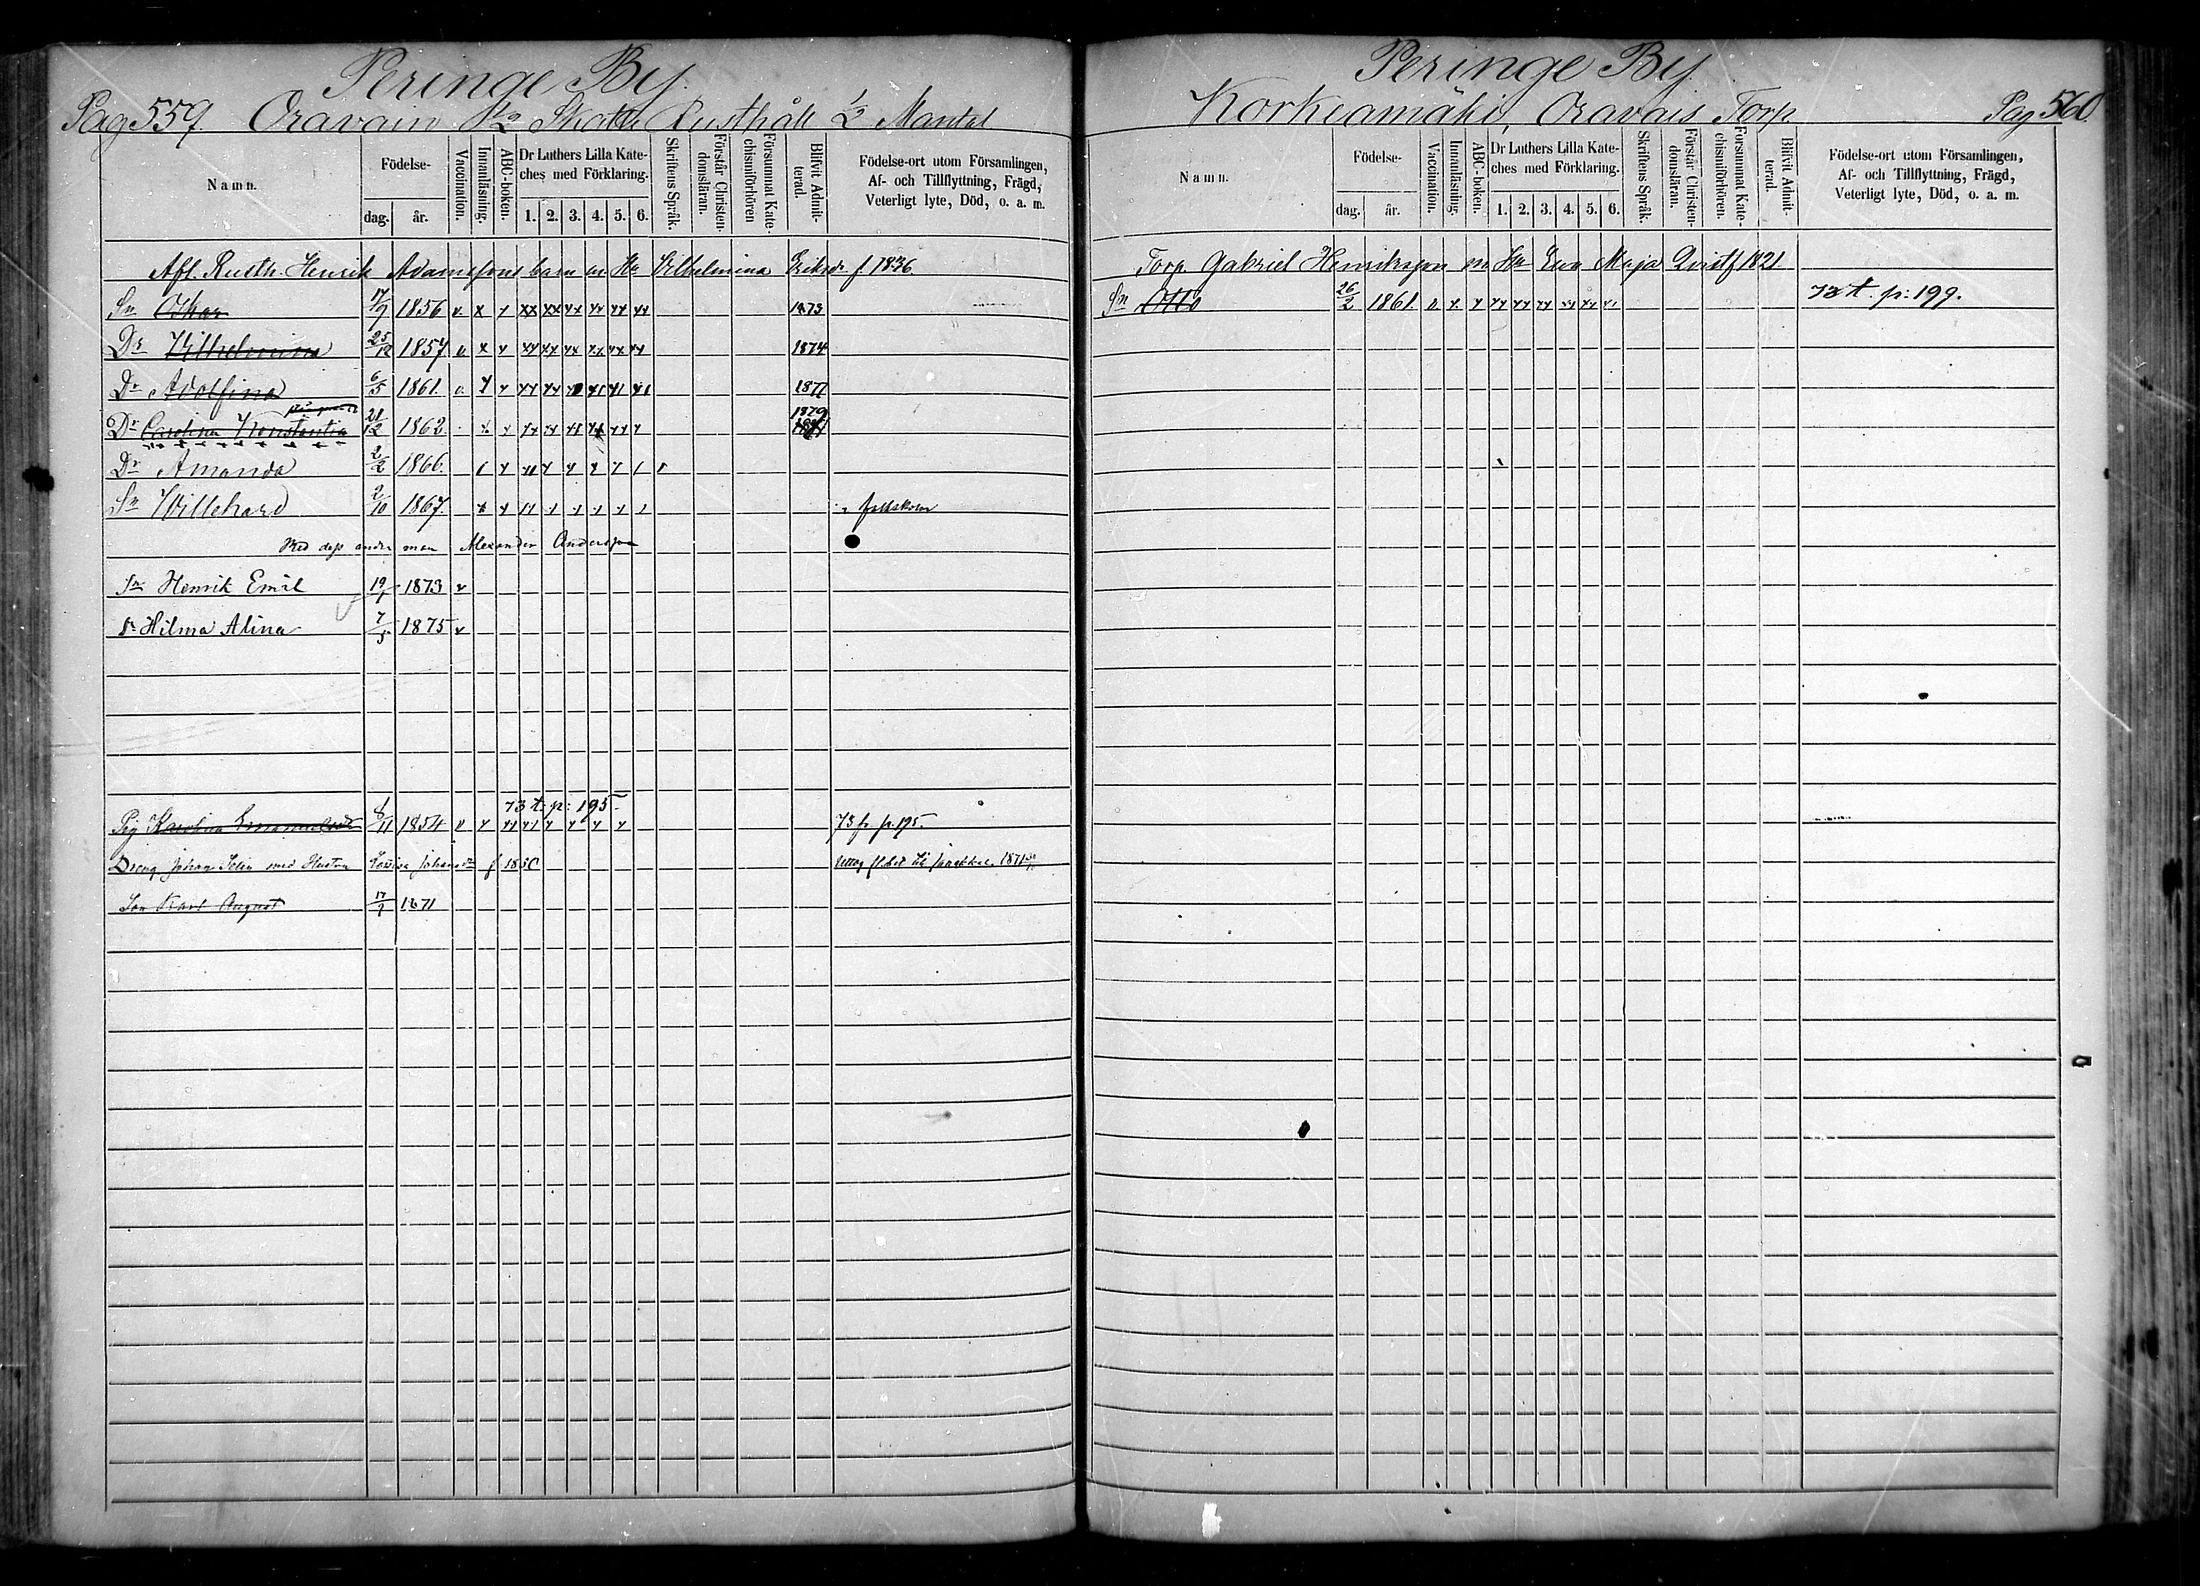 Peringe By.
Pag 559. Oravain Skatte Rusthåll 1/2 Mantal
Namn. Födelse- dag. år. Vaccination. Innanläsning. ABC-boken. Dr Luthers Lilla Kateches med Förklaring. 1. 2. 3. 4. 5. 6. Skriftens Språk. Förstår Christendomsläran. Försummat Katechismiförhören Blifvit Admitterad. Födelse-ort utom Församlingen, Af- och Tillflyttning, Frägd, Veterligt lyte, Död, o. a. m.
Afl. Rusth. Henrik Adamssons barn m. Hu Vilhelmina Eriksdr f. 1836
Sn Oskar 17/9 1856 v. x x xx xx xx xx xx xx 1873
Dr Vilhelmina 25/12 1857 v x x xx xx xx xx xx xx 1874
Dr Adolfina 6/5 1861. v. x x xx xx 1877
Dr Carolina Konstantia 21/12 1862 x x 1879
Dr Amanda 2/2 1866.
Sn Willehard 2/10 1867. folkskolan
Med dess andre man Alexander Andersson
Sn Henrik Emil 19/ 1873 v
Dr Hilma Alina 7/5 1875 v
73 t. p: 195
Pig Karolina Emanuelsdr 1/11 1854 v x xx x1 x x x x 73 fr p. 195.
Dreng Johan Selin med Hustru Lovisa Johansdr f 1850 1871
Son Karl August 17/7 1871
Peringe By
Korkeamäki, Oravais Torp Pag 560.
Namn. Födelse- dag. år. Vaccination. Innanläsning. ABC-boken. Dr Luthers Lilla Kateches med Förklaring. 1. 2. 3. 4. 5. 6. Skriftens Språk. Förstår Christendomsläran. Försummat Katechismiförhören. Blifvit Admitterad. Födelse-ort utom Församlingen, Af- och Tillflyttning, Frägd, Veterligt lyte, Död, o. a. m.
Torp. Gabriel Henriksson m Hu Eva Maja Qvist f 1821.
Sn Otto 26/2 1861. v. x x xx xx xx xx xx x1 73 t. p: 199.